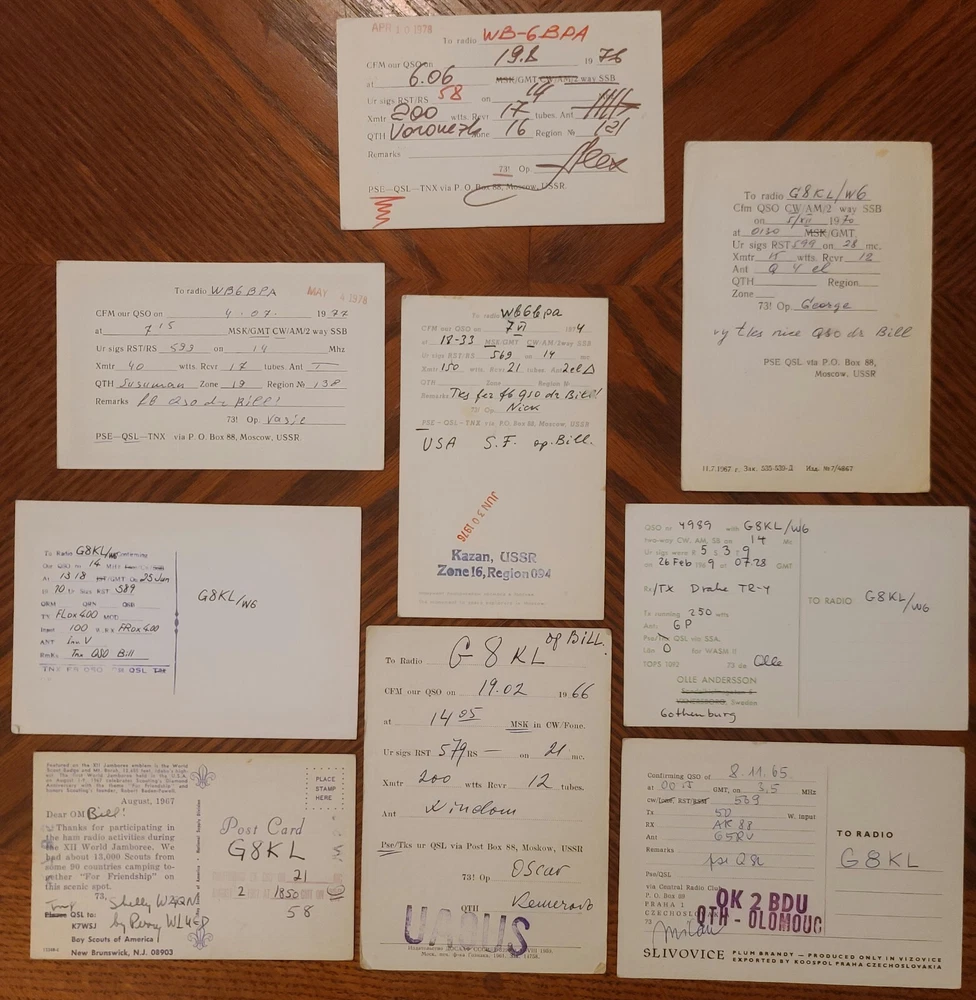 APR 10 1978
To radio WB-6BPA
CFM our QSO on 19.8 1976
at 6.06 MSK/GMT CW/AM/2 way SSB
Ur sigs RST/RS 58 on 14
Xmtr 200 wtts. Rcvr 17 tubes. Ant
QTH Voronezh Zone 16 Region № 121
Remarks
73! Op. Alex
PSE—QSL—TNX via P. O. Box 88, Moscow, USSR.
To radio G8KL/W6
Cfm QSO CW/AM/2 way SSB
on 5/XII 1970
at 0130 MSK/GMT
Ur sigs RST 599 on 28 mc.
Xmtr wtts. Rcvr 12
Ant Q 4 el
QTH Region
Zone
73! Op. George
vy tks nice QSO dr Bill
PSE QSL via P.O. Box 88,
Moscow, USSR
11.7.1967 г. Зак. 535-539-2 Изд. №7/4667
To radio WB6BPA MAY 4 1978
CFM our QSO on 4.07. 1977
at 7 15 MSK/GMT CW/AM/2 way SSB
Ur sigs RST/RS 599 on 14 Mhz
Xmtr 40 wtts. Rcvr 17 tubes Ant
QTH Susuman Zone 19 Region № 138
Remarks fb QSO dr Bill!
73! Op.
PSE—QSL—TNX via P. O. Box 88, Moscow, USSR
To radio WB6bpa
CFM our QSO on 7 VI 1974
at 18-33 MSK/GMT CW-AM/2way SSB
Ur sigs RST/RS 569 on 14 mc
Xmtr 150 wtts Rcvr 21 tubes. Ant 2el Δ
QTH Zone Region №
Remarks Tks fer fb qso dr Bill!
73! Op. Nick
PSE—QSL—TNX via P.O. Box 88, Moscow, USSR
USA S.F. op. Bill.
JUN 30 1976
Kazan, USSR
Zone16, Region 094
To Radio G8KL/W6 Confirming
Our QSO on 14
At 1318 GMT On 25 Jun
19 70 Ur Sigs RST 589
QRM QRN QSB
TX FLDX400 MOD
Input 100 W. RX FRDX400
ANT Inv V
Rmks Tnx QSO Bill
G8KL/W6
QSO nr 4989 with G8KL/W6
two-way CW, AM, SB on 14 Mc
Ur sigs were R 5 S 3 T 9
on 26 Feb 1969 at 07.28 GMT
Rx/TX Drake TR-4
Tx running 250 wtts
Ant: GP
Pse/Tnx QSL via SSA.
Län O for WASM II
TOPS 1092 73 de Olle
OLLE ANDERSSON
Sweden
Gothenburg
TO RADIO G8KL/W6
To Radio G 8 KL op BILL.
CFM our QSO on 19.02 1966
at 14 05 MSK in CW/Fone.
Ur sigs RST 579 RS — on 21 mc.
Xmtr 200 wtts Rcvr 12 tubes.
Ant Windom
Pse/Tks ur QSL via Post Box 88, Moskow, USSR
73! Op Oscar
QTH Kemerovo
Featured on the XII Jamboree emblem is the World
"For Friendship" and
August, 1967
Dear OM Bill!
Thanks for participating in
the ham radio activities during
the XII World Jamboree. We
had about 13,000 Scouts from
some 90 countries camping to-
gether "For Friendship" on
this scenic spot.
73, Shelly
by Perry
Please QSL to:
K7WSJ
Boy Scouts of America
New Brunswick, N.J. 08903
PLACE
STAMP
HERE
Post Card
G8KL
21
2 1850
58
Confirming QSO of 8.11.65
at 00 15 GMT, on 3,5 MHz
cw/fone, RST/RSM 569
Tx 50 W. input
RX AR 88
Ant G5RV
Remarks pse QSL
Pse/QSL
via Central Radio Club
P. O. Box 69
PRAHA 1
CZECHOSLOVAKIA
73. Milan
OK 2 BDU
QTH - OLOMOUC
TO RADIO
G8KL
SLIVOVICE PLUM BRANDY — PRODUCED ONLY IN VIZOVICE
EXPORTED BY KOOSPOL PRAHA CZECHOSLOVAKIA